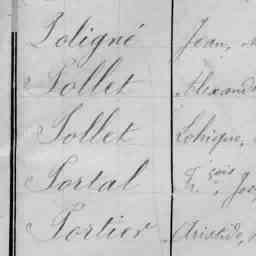 Poligné Jean,
Pollet Alexand
Pollet
Portal Fçois, Jos
Portier Aristide,